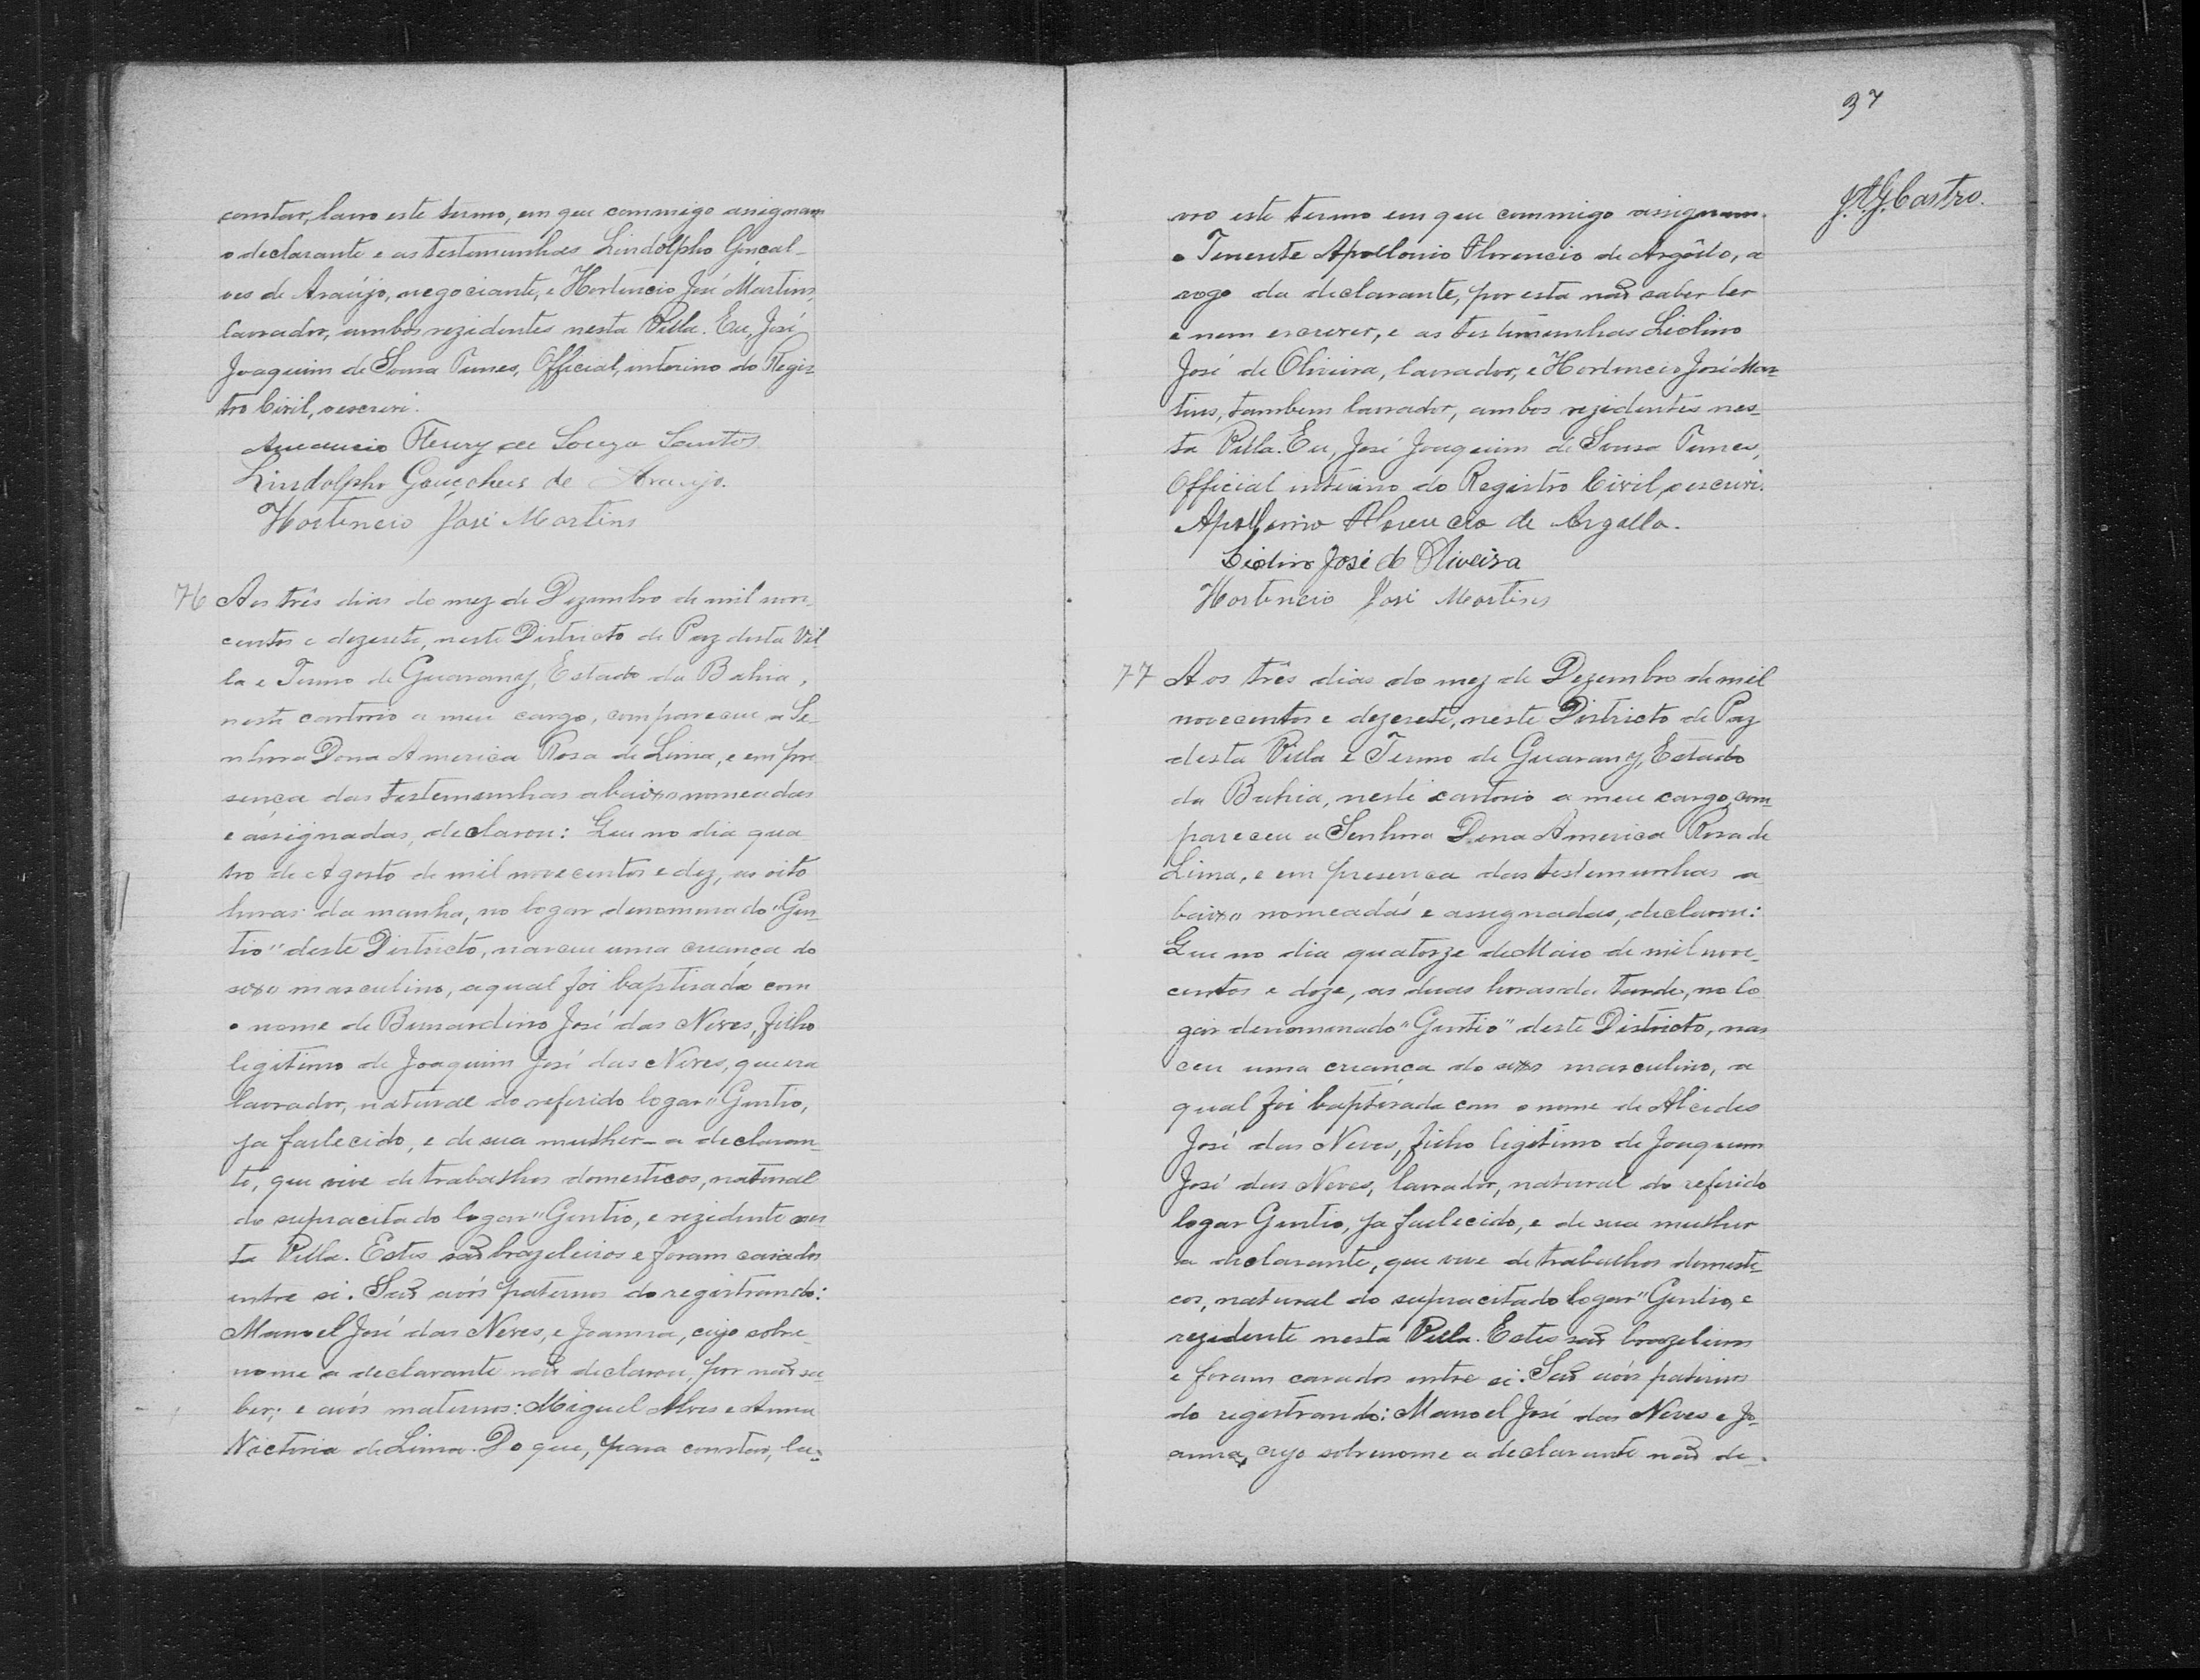 constar, lavro este termo, em que commigo assignam
o declarante e as testemunhas Lindolpho Gonçal-
ves de Araújo, negociante, e Hortencio José Martins,
lavrador, ambos rezidentes nesta Villa. Eu, José
Joaquim de Sousa Tunes, Official, interino do Regis-
tro Civil, o escrevi.
Fleury de Souza Santos
Lindolpho Gonçalves de Araujo.
Hortencio José Martins
76 Aos três dias do mez de Dezembro de mil nove-
centos e dezesete, neste Districto de Paz desta Vil
la e Termo de Guarany, Estado da Bahia,
neste cartorio a meu cargo, compareceu a Se-
nhora Dona America Rosa de Lima, e em pre
sença das testemunhas abaixo nomeadas
e assignadas, declarou: Que no dia qua
tro de Agosto de mil novecentos e dez, as oito
horas da manha, no logar denominado "Gen-
tio" deste Districto, nasceu uma criança do
sexo masculino, a qual foi baptisada com
o nome de Bernardino José das Neves, filho
legitimo de Joaquim José das Neves, que era
lavrador, natural do referido logar "Gentio,
ja fallecido, e de sua mulher - a declaran-
te, que vive de trabalhos domesticos, natural
do supracitado logar "Gentio, e rezidente nes
ta Villa. Estes são brazeleiros e foram casados
entre si. São avós paternos do registrando:
Manoel José das Neves, e Joanna, cujo sobre-
nome a declarante não declarou, por não sa-
ber; e avós maternos: Miguel Alves e Anna
Victoria de Lima. Do que, para constar, la-
37
J.A.G.Castro.
vro este termo em que commigo assignam
o Tenente Apollonio Florencio de Argôllo, a
rogo da declarante, por esta não saber ler
e nem escrever, e as testimunhas Liolino
José de Oliveira, lavrador, e Hortencio José Mar-
tins, tambem lavrador, ambos rezidentes nes-
ta Villa. Eu, José Joaquim de Sousa Tunes,
Official interino do Registro Civil, o escrevi.
Apollonio Florencio de Argollo.
Liolino José de Oliveira
Hortencio José Martins
77 Aos três dias do mez de Dezembro de mil
novecentos e dezesete, neste Districto de Paz
desta Villa e Termo de Guarany, Estado
da Bahia, neste cartorio a meu cargo, com-
pareceu a Senhora Dona America Rosa de
Lima, e em presença das testemunhas a
baixo nomeadas e assignadas, declarou:
Que no dia quatorze de Maio de mil nove-
centos e doze, as duas horas da tarde, no lo
gar denominado "Gentio" deste Districto, nas
ceu uma criança do sexo masculino, a
qual foi baptisada com o nome de Alcides
José das Neves, filho legitimo de Joaquim
José das Neves, lavrador, natural do referido
logar Gentio, ja fallecido, e de sua mulher
a declarante, que vive de trabalhos domesti-
cos, natural do supracitado logar "Gentio, e
rezidente nesta Villa. Estes são brazeleiros
e foram casados entre si. São avós paternos
do registrando: Manoel José das Neves e Jo-
anna, cujo sobrenome a declarante não de-